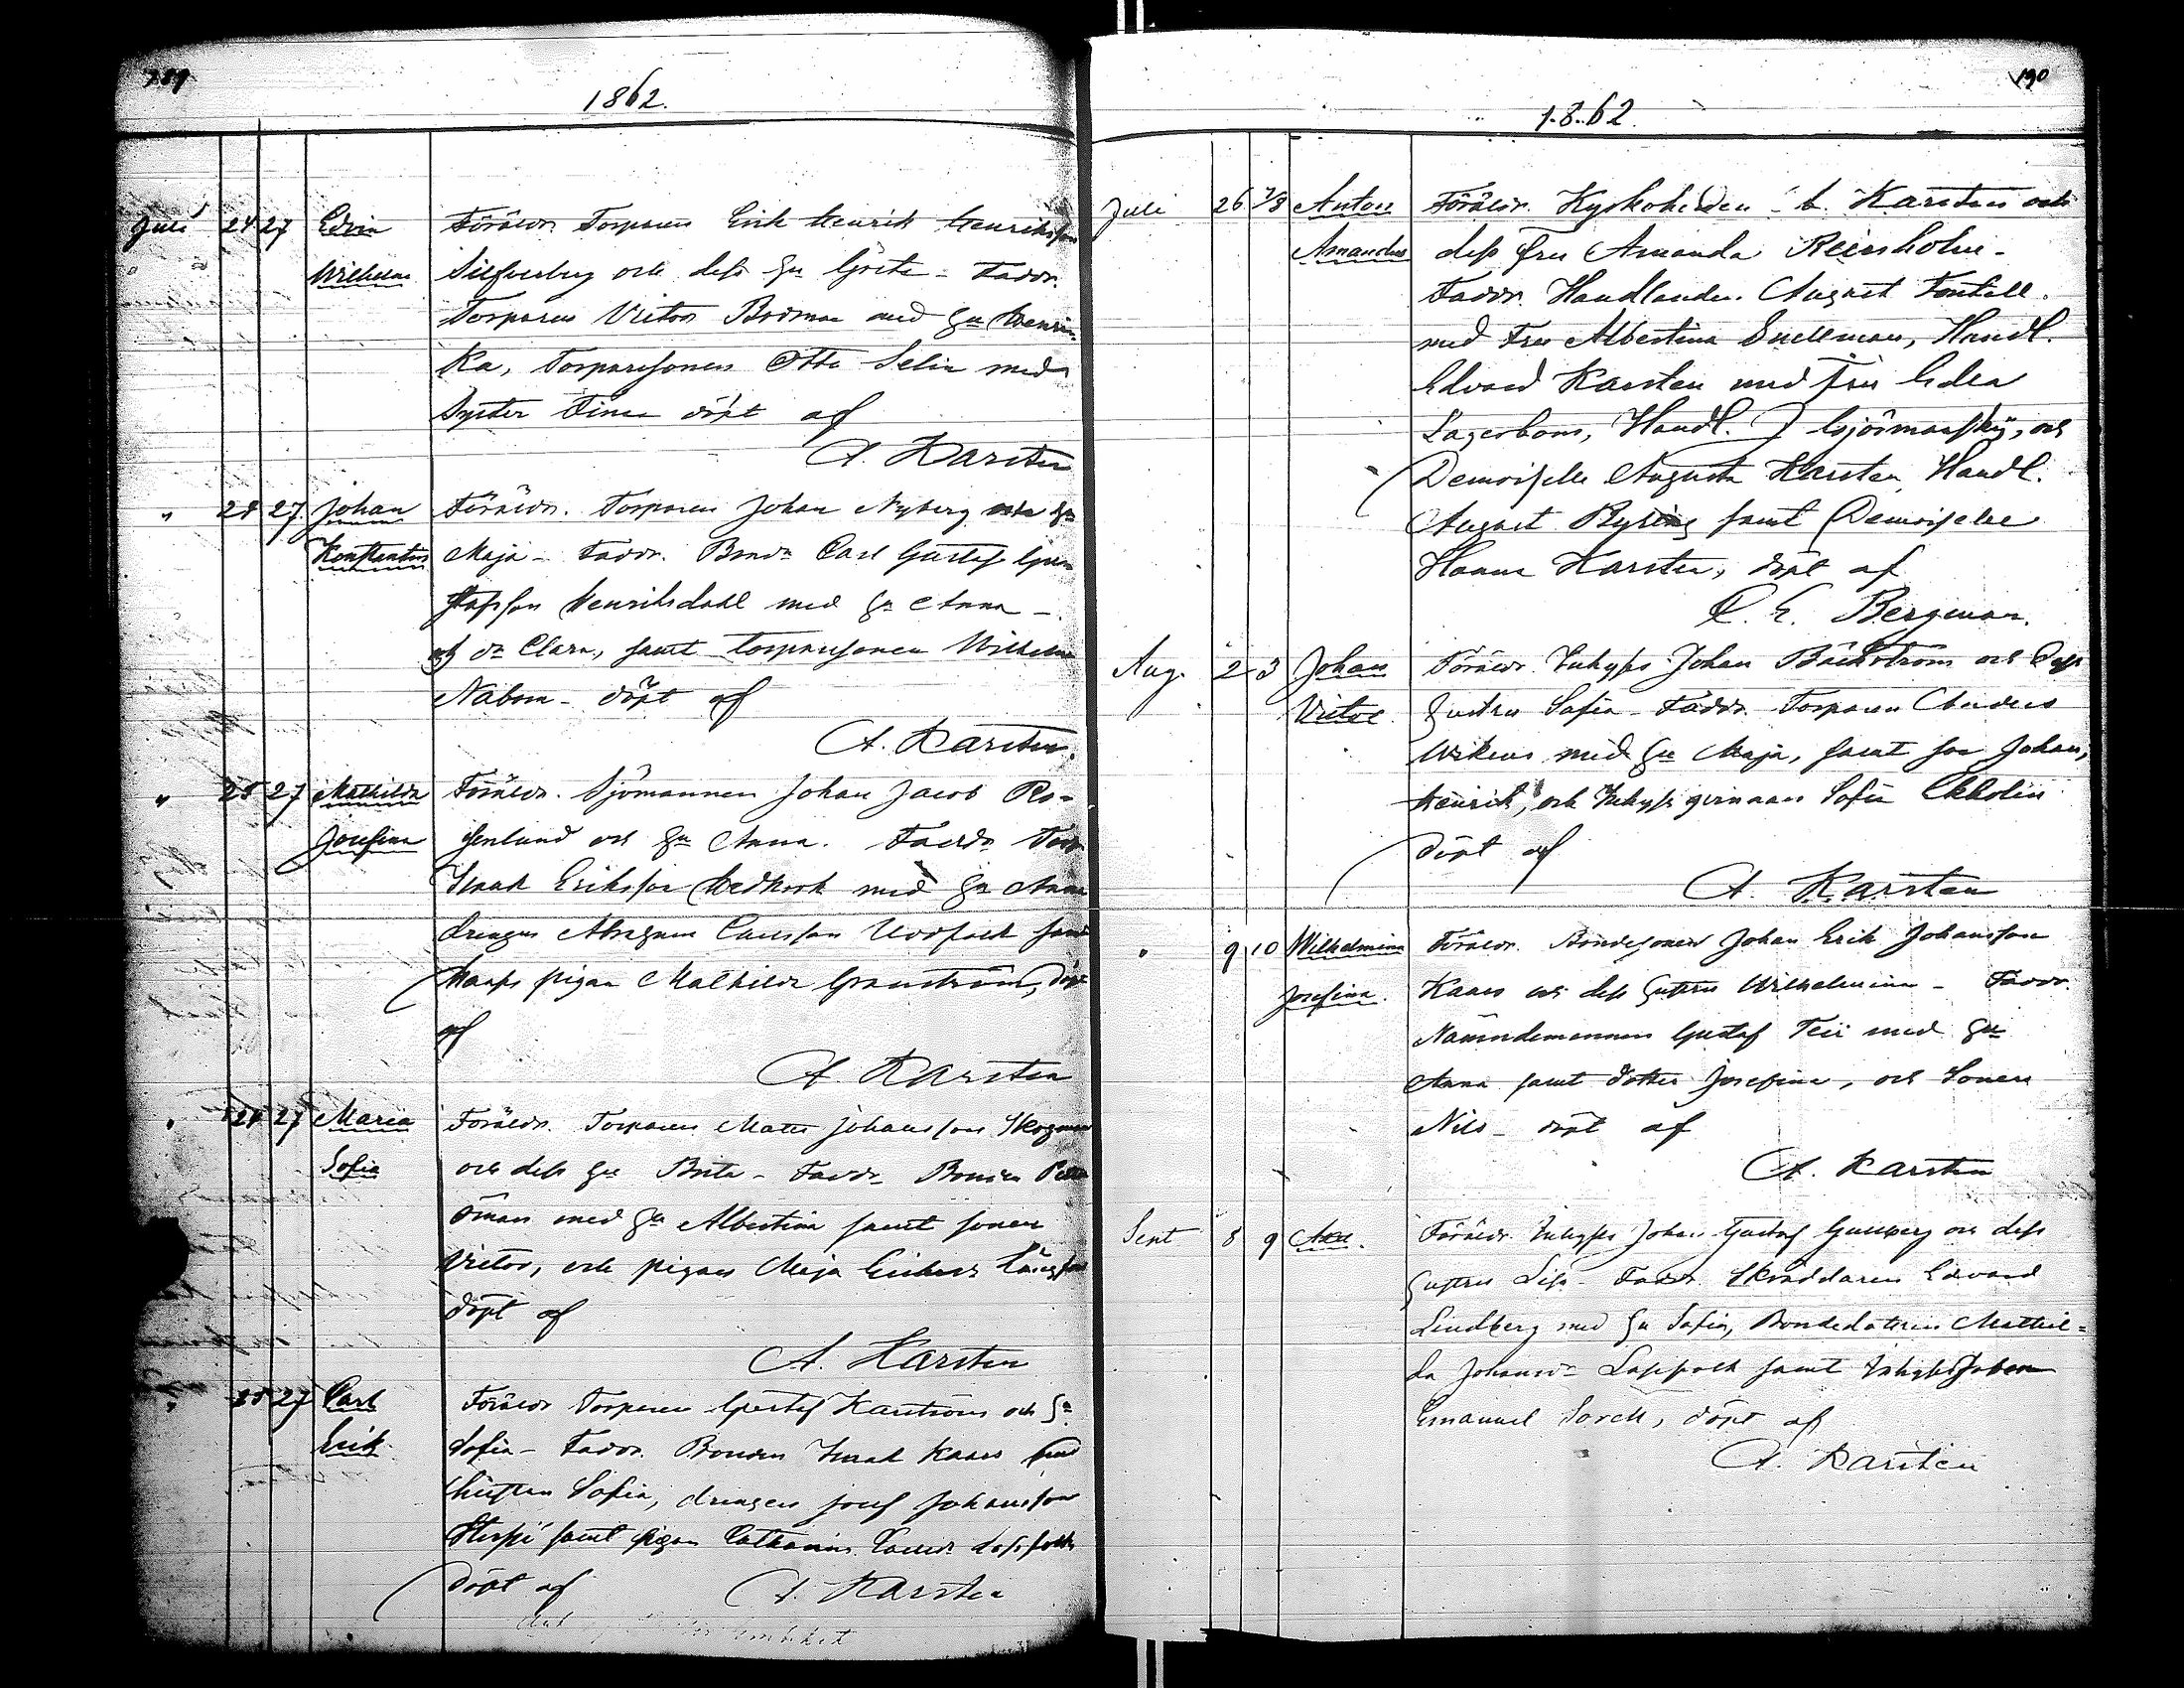 189
1862.
Juli 24 27 Edvin Föräldr. Torparen Erik Henrik Henriksson
Wilhelm Silfverberg och dess hu Greta - Faddr.
Torparen Victor Bodman med hu Henri-
ka, Torparesonen Otto Selin med
Syster Fina döpt af
A. Karsten
" 25 27 Johan Föräldr. Torparen Johan Nyberg och hu
Konstantin Maja - Faddr. Bond. Carl Gustaf Gu-
stafsson Henriksdahl med hu Anna -
dr Clara, samt torparesonen Wilhelm
Nabom - döpt af
A. Karsten.
" 25 27 Mathilda Föräldr. Sjömannen Johan Jacob Ro-
Josefina senlund och hu Anna. Faddr.
Isaak Eriksson med hu Anna
drengen Carlsson
pigan Mathilda Granström, döpt
af
A. Karsten
" 25 27 Maria Föräldr. Torparen Matts Johansson Skogman
Sofia och dess hu Brita - Faddr. Bonden
Öman med hu Albertina samt sonen
Victor, och pigan Maja
döpt af
A. Karsten
" 25 27 Carl Föräldr Torparen Gustaf Karström och hu
Erik Sofia - Faddr. Bonden Isaak Kaas med
hustrun Sofia, drengen Josef Johansson
samt pigan Catharina
döpt af A. Karsten
190
1862.
Juli 26 7/8 Anton Föräldr. Kyrkoherden A. Karsten och
Amandus dess Fru Amanda Reinholm -
Faddr. Handlanden August Fontell
med Fru Albertina Snellman, Handl.
Edvard Karsten med Fru Edla
Lagerbom, Handl. J. och
Demoiselle Augusta Karsten, Handl.
August Rysing samt Demoiselle
Hanna Karsten, döpt af
C. E. Bergman.
Aug. 2 3 Johan Föräldr. Inhyss Johan Bäckström och Dess
Victor. hustru Sofia - Faddr. Torparen Anders
med hu Maja, samt son Johan
Henrik, och Inhyss qvinnan Sofia Ekholm
döpt af
A. Karsten
" 9 10 Wilhelmina Föräldr. Bondesonen Johan Erik Johansson
Josefina. Kaas och dess hustru Wilhelmina - Faddr.
Nämndemannen Gustaf Teir med hu
Anna samt dotter Josefina, och Sonen
Nils - döpt af
A. Karsten
Sept 8 9 Axel. Föräldr. Inhyss Johan Gustaf Gullberg och dess
hustru Lisa - Faddr. Skräddaren Edvard
Lindberg med hu Sofia, Bondedottren Mathil-
da Johansdr Lappolk samt Inhyss Johan
Emanuel döpt af
A. Karsten